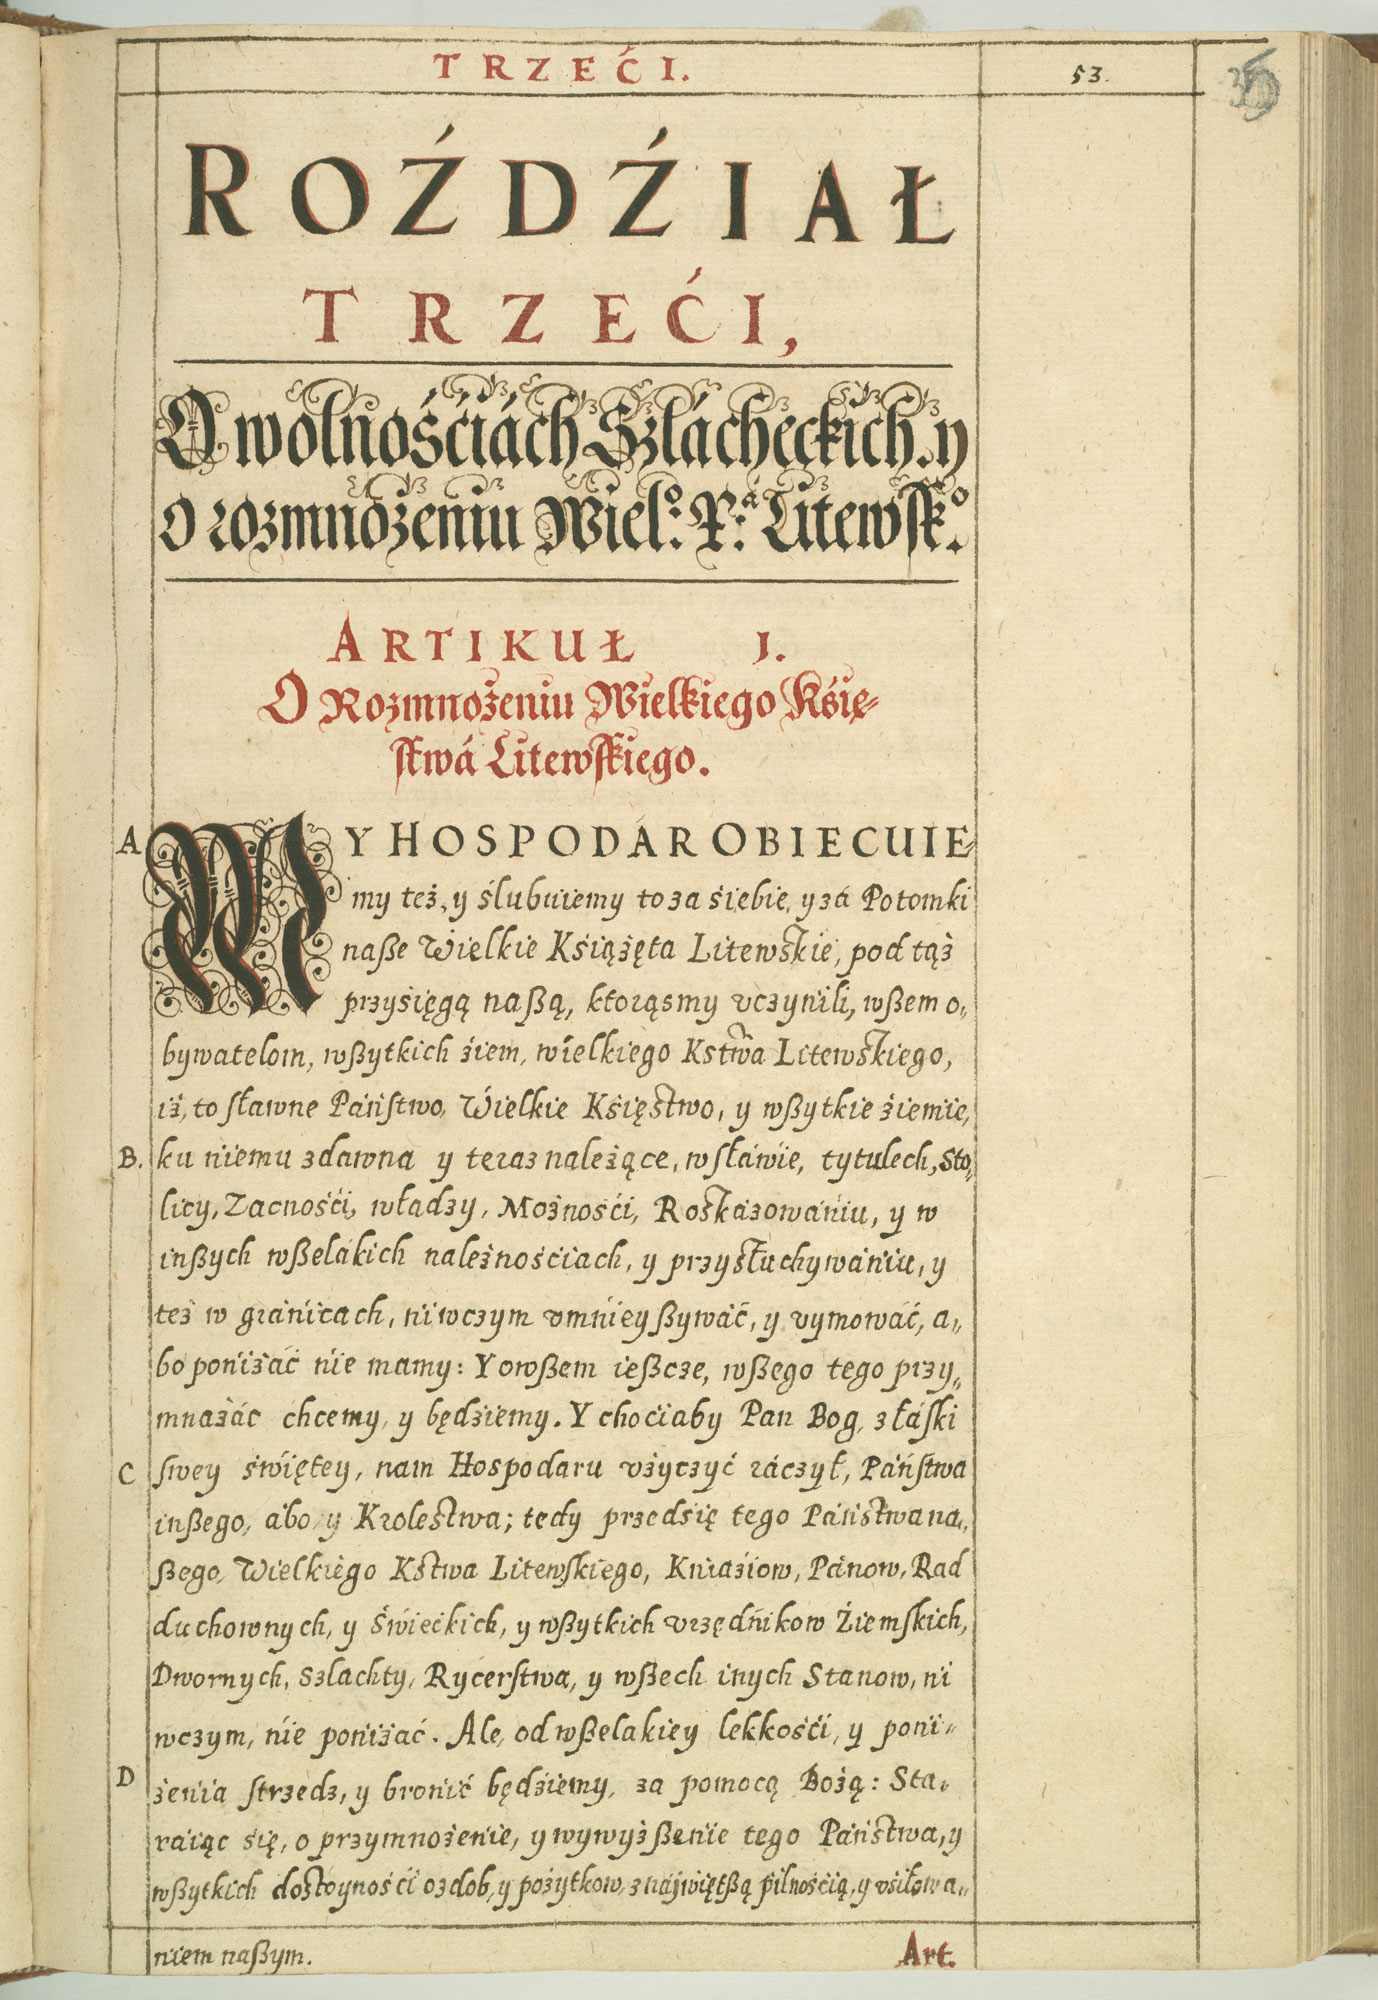 TRZEĆI.
53.
ROŹDŹIAŁ
TRZEĆI,
O wolnośćiách Szlácheckich. y
o rozmnożeniu Wiel:º X:á Litewsk:º
ARTIKUŁ 1.
O Rozmnożeniu Wielkiego Księ-
stwá Litewskiego.
A
MY HOSPODAR OBIECUIE-
my też, y ślubuiemy to za śiebie, y zá Potomki
naße Wielkie Książęta Litewskie, pod tąż
przyśięgą naßą, ktorąsmy vczynili, wßem o-
bywatelom, wßytkich źiem, wielkiego Kstwa Litewskiego,
iż, to sławne Państwo, Wielkie Księstwo, y wßytkie źiemie,
B.
ku niemu zdawna y teraz należące, w sławie, tytulech, Sto-
licy, Zacnośći, władzy, Możnośći, Roskazowániu, y w
inßych wßelákich należnośćiach, y przysłuchywániu, y
też w gránicach, niwczym vmnieyßywáć, y vymowáć, a-
bo poniżáć nie mamy: Y owßem ießcze, wßego tego przy-
mnażáć chcemy, y będźiemy. Y choćiaby Pan Bog, z łáski
C
swey świętey, nam Hospodaru vżyczyć ráczył, Państwa
inßego, ábo y Krolestwa; tedy przedsię tego Państwa na-
ßego, Wielkiego Kstwa Litewskiego, Kniaźiow, Pánow, Rad
duchownych, y Świeckich, y wßytkich vrzędnikow Źiemskich,
Dwornych, Szlachty, Rycerstwa, y wßech inych Stanow, ni
wczym, nie poniżać. Ale, od wßelakiey lekkośći, y poni-
D
żenia strzedz, y bronić będźiemy, za pomocą Bożą: Sta-
raiąc się, o przymnożenie, y wywyżßenie tego Państwa, y
wßytkich dostoynośći ozdob, y pożytkow, z naywiętßą pilnośćią, y vśiłowa-
niem naßym.
Art.